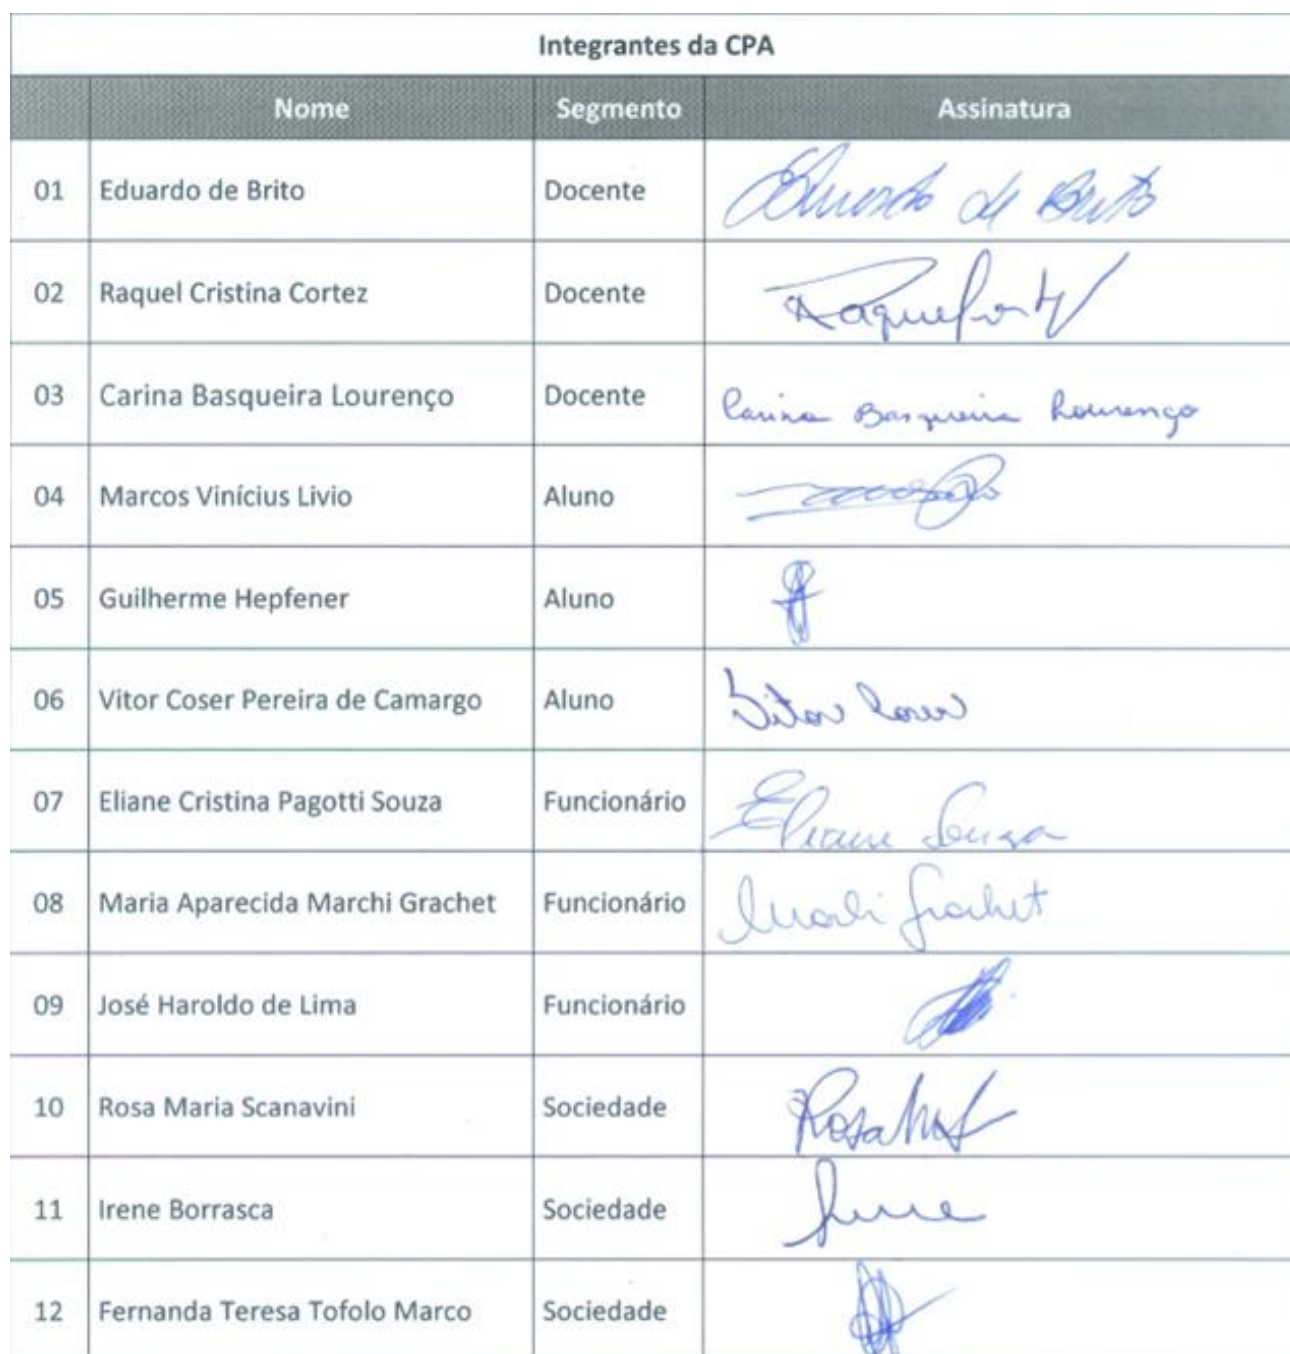 Integrantes da CPA
Nome Segmento Assinatura
01 Eduardo de Brito Docente Eduardo de Brito
02 Raquel Cristina Cortez Docente
03 Carina Basqueira Lourenço Docente Carina Basqueira Lourenço
04 Marcos Vinícius Livio Aluno
05 Guilherme Hepfener Aluno
06 Vitor Coser Pereira de Camargo Aluno Vitor Coser
07 Eliane Cristina Pagotti Souza Funcionário Eliane Souza
08 Maria Aparecida Marchi Grachet Funcionário Grachet
09 José Haroldo de Lima Funcionário
10 Rosa Maria Scanavini Sociedade
11 Irene Borrasca Sociedade Irene
12 Fernanda Teresa Tofolo Marco Sociedade